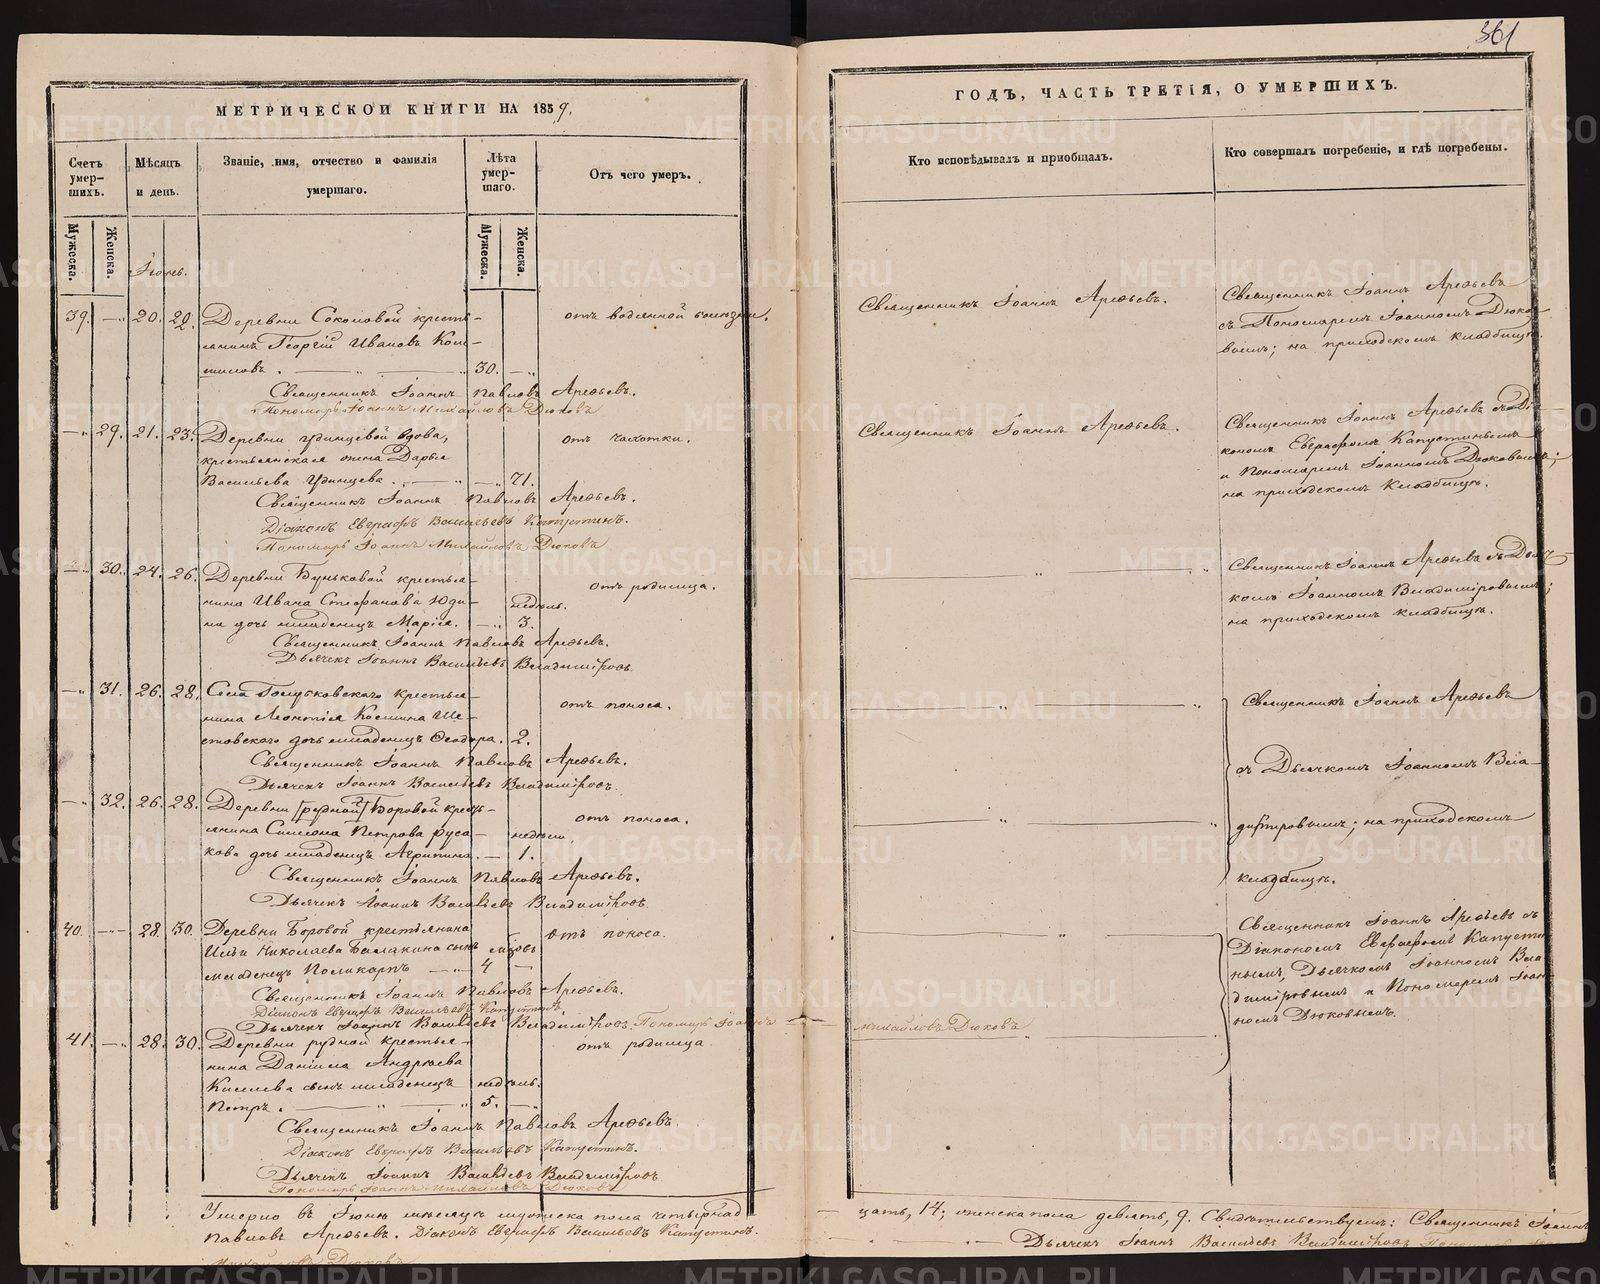 361
МЕТРИЧЕСКОЙ КНИГИ НА 1859.
Счетъ умер-шихъ.
Мѣсяцъ и день.
Званіе, имя, отчество и фамилія умершаго.
Лѣта умер-шаго.
Отъ чего умеръ.
Мужеска.
Женска.
Мужеска.
Женска.
Іюнь.
39. —„ 20. 22. Деревни Соколовой кресть- отъ водянной болезни.
янинъ Георгій Ивановъ Кош-
миловъ. — „ — „ 30. —„
Священникъ Іоаннъ Павловъ Арефьевъ.
Пономарь Іоаннъ Михайловъ Дюковъ
—„ 29. 21. 23. Деревни Удинцевой вдова, отъ чахотки.
крестьянская жена Дарья
Васильева Удинцева. — „ —„ 71.
Священникъ Іоаннъ Павловъ Арефьевъ.
Діаконъ Евграфъ Васильевъ Капустинъ.
Пономарь Іоаннъ Михайловъ Дюковъ
—„ 30. 24. 26. Деревни Буньковой крестья- отъ родимца.
нина Ивана Стефанова Юди- недѣль.
на дочь младенецъ Марія. —„ 3.
Священникъ Іоаннъ Павловъ Арефьевъ.
Дьячекъ Іоаннъ Васильевъ Владиміровъ
—„ 31. 26. 28. Села Голубковскаго крестья- отъ поноса.
нина Леонтія Косьмина Ше-
стовскаго дочь младенецъ Феодора. 2.
Священникъ Іоаннъ Павловъ Арефьевъ.
Дьячекъ Іоаннъ Васильевъ Владиміровъ.
—„ 32. 26. 28. Деревни [рудной] Боровой кресть- отъ поноса.
янина Симеона Петрова Руса- недѣли
кова дочь младенецъ Агрипина. — 1.
Священникъ Іоаннъ Павловъ Арефьевъ.
Дьячекъ Іоаннъ Васильевъ Владиміровъ.
40. —„ 28. 30. Деревни Боровой крестьянина отъ поноса.
Ильи Николаева Балакина сынъ
младенецъ Поликарпъ — „ 4 —
Священникъ Іоаннъ Павловъ Арефьевъ.
Діаконъ Евграфъ Васильевъ Капустинъ.
Дьячекъ Іоаннъ Васильевъ Владиміровъ. Пономарь Іоаннъ
41. —„ 28. 30. Деревни рудной крестья- отъ родимца
нина Даніила Андреева
Киселева сынъ младенецъ недѣль.
Петръ. — „ — „ 5. —„
Священникъ Іоаннъ Павловъ Арефьевъ.
Діаконъ Евграфъ Васильевъ Капустинъ.
Дьячекъ Іоаннъ Васильевъ Владиміровъ.
Пономарь Іоаннъ Михайловъ Дюковъ
Умерло въ Іюнѣ мѣсяцѣ мужеска пола четырнад
Павловъ Арефьевъ. Діаконъ Евграфъ Васильевъ Капустинъ.
Михайловъ Дюковъ
ГОДЪ, ЧАСТЬ ТРЕТІЯ, О УМЕРШИХЪ.
Кто исповѣдывалъ и приобщалъ.
Кто совершалъ погребеніе, и гдѣ погребены.
Священникъ Іоаннъ Арефьевъ.
Священникъ Іоаннъ Арефьевъ
съ Пономаремъ Іоанномъ Дюко-
вымъ; на приходскомъ кладбищѣ.
Священникъ Іоаннъ Арефьевъ.
Священникъ Іоаннъ Арефьевъ съ Ді-
кономъ Евграфомъ Капустинымъ
и Пономаремъ Іоанномъ Дюковымъ;
на приходскомъ кладбищѣ.
Священникъ Іоаннъ Арефьевъ съ Дьяч-
комъ Іоанномъ Владиміровымъ;
на приходскомъ кладбищѣ.
Священникъ Іоаннъ Арефьевъ
съ Дьячкомъ Іоанномъ Вла-
диміровымъ; на приходскомъ
кладбищѣ.
Священникъ Іоаннъ Арефьевъ съ
Діакономъ Евграфомъ Капусти-
нымъ, Дьячкомъ Іоанномъ Вла-
диміровымъ и Пономаремъ Іоан-
номъ Дюковымъ.
Михайловъ Дюковъ
цать, 14; женска пола девять, 9. Свидѣтельствуемъ: Священникъ Іоаннъ
Дьячекъ Іоаннъ Васильевъ Владиміровъ
METRIKI.GASO-URAL.RU